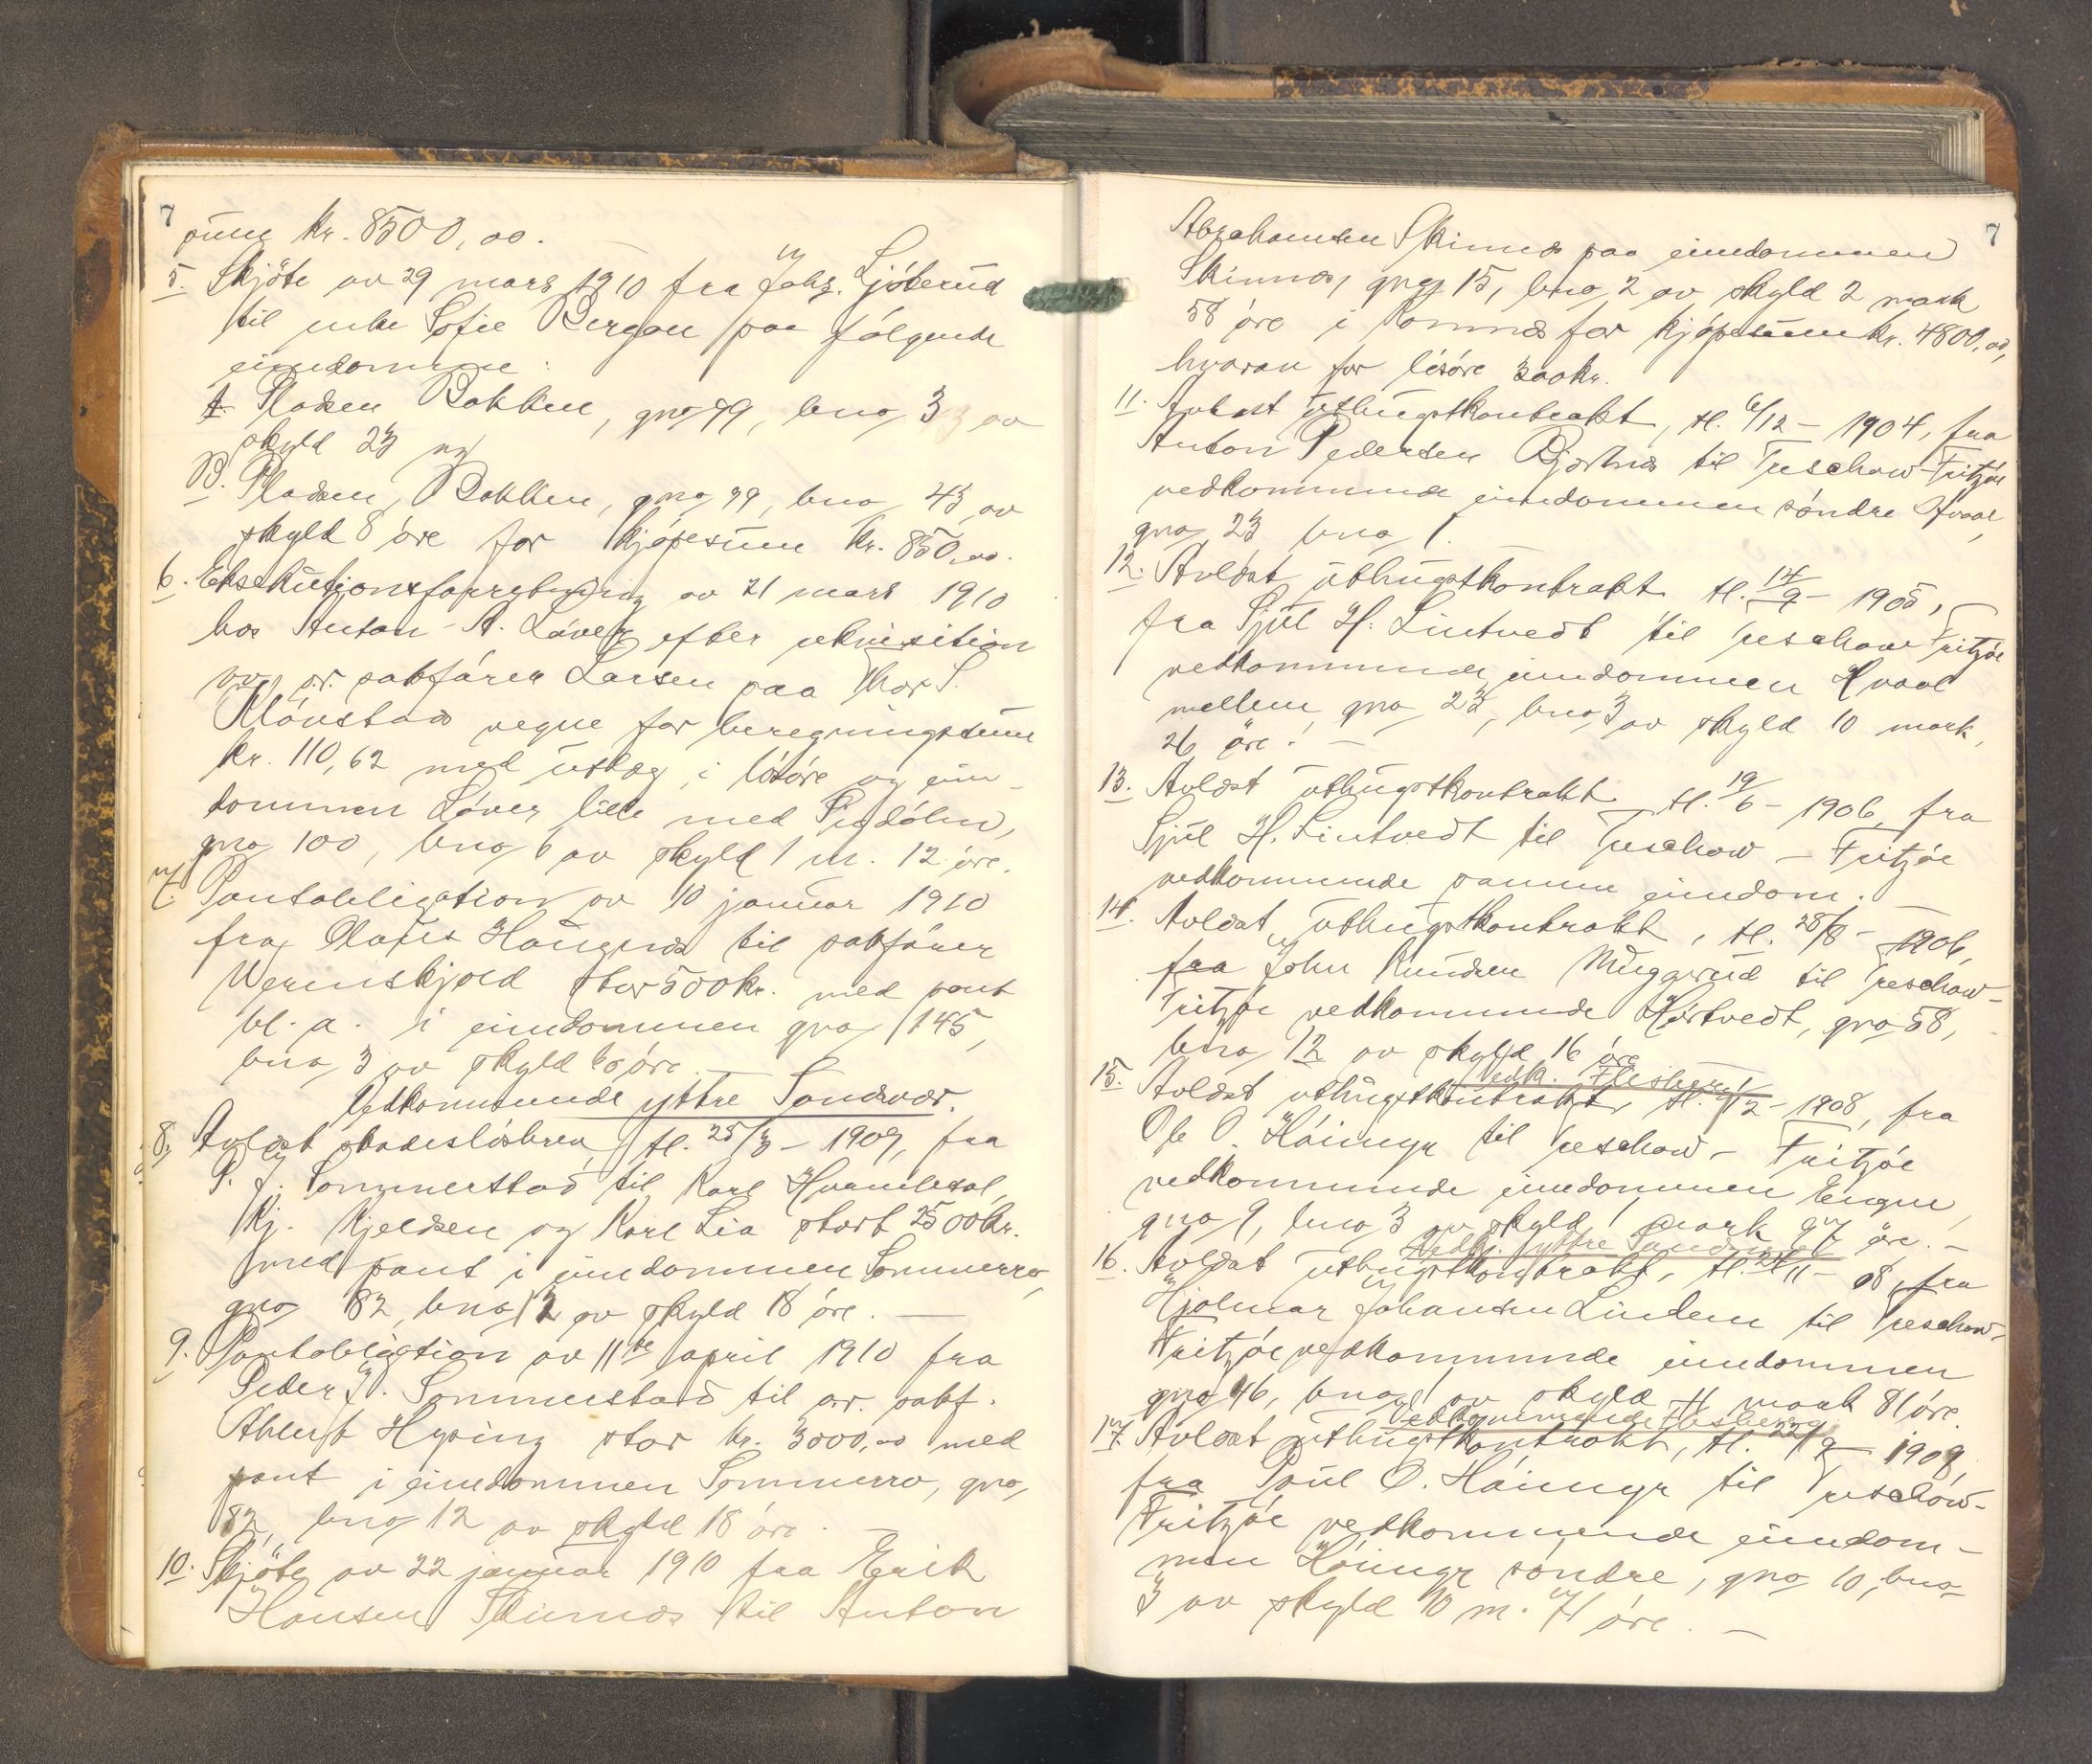 7
sum kr. 8500,00.
5. Skjöte av 29 mars 1910 fra Johs. Ljöterud
til enke Sofie Bergan paa fölgende
eiendomme:
A. Pladsen Bakken, gno 99, bno 3 av
skyld 23 og
B. Pladsen Bakken, gno 99, bno 43 av
skyld 8 öre for kjöpesum kr. 850,00.
6. Eksekutionsforretning av 21 mars 1910
hos Anton A. Löver efter rekvisition
av o.r. sakförer Larsen paa Thor S.
Klönstads vegne for beregningssum
kr. 110,62 med utlæg i lösöre og eien-
dommen Löver lille med
gno 100, bno 6 av skyld 1 m. 12 öre.
7. Pantobligation av 10 januar 1910
fra Olaus Haugnes til sakförer
Werenskjold stor 500 kr. med pant
bl. a. i eiendommen gno 145,
bno 3 av skyld 60 öre.
Vedkommende ytre Sandsvær.
8. Avlæst skadeslösbrev, tl. 25/3 - 1909, fra
P. J. Sommerstad til Karl Hvambsal,
Kj. Kjeldsen og Karl Lia stort 2500 kr.
med pant i eiendommen Sommerro,
gno 82, bno 12 av skyld 18 öre. —
9. Pantobligation av 11te april 1910 fra
Peder J. Sommerstad til o.r. sakf.
Ahlert Hysing stor kr. 3000,00 med
pant i eiendommen Sommerro, gno
82, bno 12 av skyld 18 öre.
10. Skjöte av 22 januar 1910 fra Erik
Hansen Skinnes til Anton
7
Abrahamsen Skinnes paa eiendommen
Skinnes, gno 15, bno 2 av skyld 2 mark
58 öre i Komnes for kjöpesum kr. 4800,00,
hvorav for lösöre 300 kr.
11. Avlæst uthugstkontrakt, tl. 6/12 - 1904, fra
Anton Pedersen Bjørknes til Treschow-Fritzöe
vedkommende eiendommen söndre Hvaal,
gno 23 bno 1.
12. Avlæst uthugstkontrakt tl. 14/9 - 1905,
fra Sjul H. Lintvedt til Treschow Fritzöe
vedkommende eiendommen Hvaal
mellem, gno 23, bno 3 av skyld 10 mark,
26 öre. —
13. Avlæst uthugstkontrakt tl. 19/6 - 1906, fra
Sjul H. Lintvedt til Treschow - Fritzöe
vedkommende samme eiendom. —
14. Avlæst uthugstkontrakt, tl. 28/8 - 1906,
fra John Knudsen Muggerud til Treschow-
Fritzöe vedkommende Hörtvedt, gno 58,
bno 12 av skyld 16 öre
Vedk. Flesberg:
15. Avlæst uthugstkontrakt, tl. 4/2 - 1908, fra
Ole O. Höimyr til Treschow - Fritzöe
vedkommende eiendommen Engne,
gno 9, bno 3 av skyld 1 mark 97 öre. —
Vedk. ytre Sandsvær
16. Avlæst uthugstkontrakt, tl. 24/11 - 08, fra
Hjalmar Johansen Lindem til Treschow-
Fritzöe vedkommende eiendommen
gno 46, bno 1 av skyld 4 mark 81 öre.
Vedkommende Flesberg
17. Avlæst uthugstkontrakt, tl. 22/9 - 1909,
fra Paul O. Höimyr til Treschow-
Fritzöe vedkommende eiendom-
men Höimyr söndre, gno 10, bno
3 av skyld 10 m. 71 öre. —